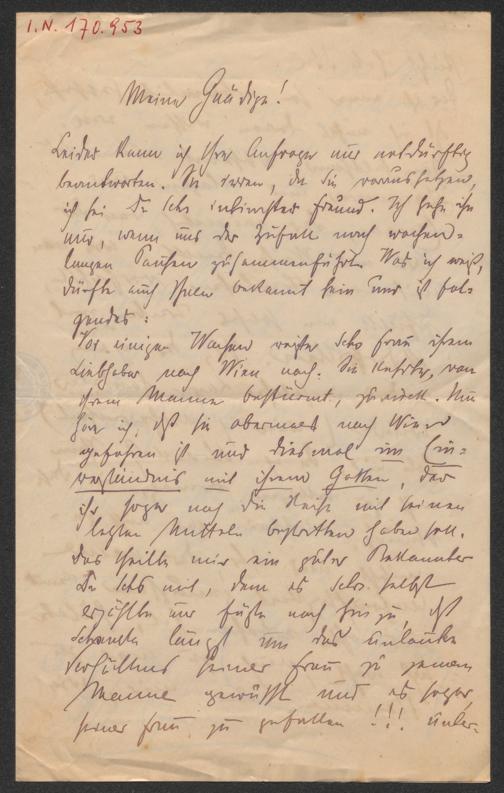 I.N. 170.953
Meine Gnädige!
Leider kann ich Ihre Anfragen nur notdürftig
beantworten. Sie irren, da Sie voraussetzen,
ich sei De Schs intimster Freund. Ich sehe ihn
nur, wenn uns der Zufall nach wochen-
langen Pausen zusammenführt. Was ich weiß,
dürfte auch Ihnen bekannt sein und ist fol-
gendes:
Vor einigen Wochen reiste Schs Frau ihrem
Liebhaber nach Wien nach. Sie kehrte, von
ihrem Manne bestürmt, zurück. Nun
höre ich, daß sie abermals nach Wien
gefahren ist und diesmal im Ein-
verständnis mit ihrem Gatten, der
ihr sogar noch die Reise mit seinen
letzten Mitteln bestritten haben soll.
Das theilte mir ein guter Bekannter
De Schs mit, dem es Schs. selbst
erzählte und fügte noch hinzu, daß
längst um das unlautere
Verhältnis seiner Frau zu jenem
Manne gewußt und es sogar,
seiner Frau zu gefallen !!! unter-